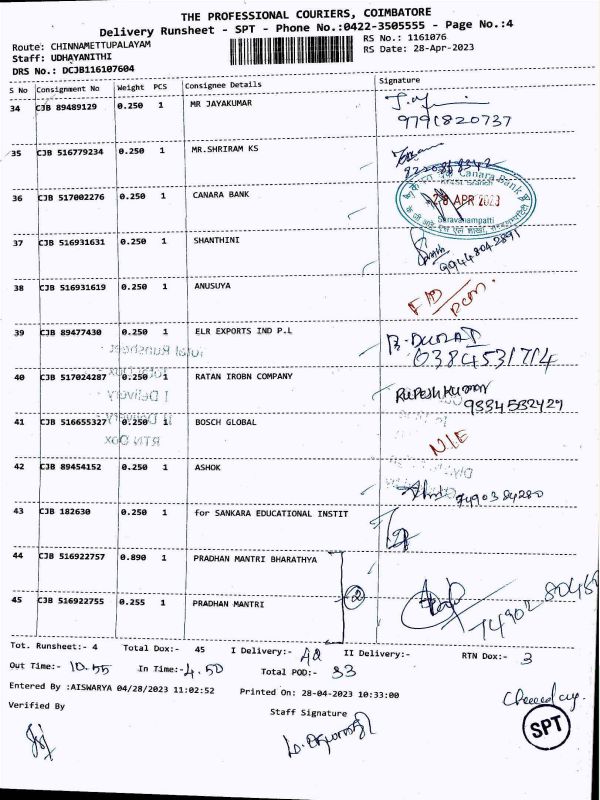 THE PROFESSIONAL COURIERS, COIMBATORE
Delivery Runsheet - SPT - Phone No.:0422-3505555 - Page No.:4
Route: CHINNAMETTUPALAYAM
RS No.: 1161076
Staff: UDHAYANITHI
RS Date: 28-Apr-2023
DRS No.: DCJB116107604
S No Consignment No Weight PCS Consignee Details Signature
34 CJB 89489129 0.250 1 MR JAYAKUMAR
9791820737
35 CJB 516779234 0.250 1 MR.SHRIRAM KS
36 CJB 517002276 0.250 1 CANARA BANK
Canara Bank
28 APR 2023
Saravanampatti
37 CJB 516931631 0.250 1 SHANTHINI
99448042891
38 CJB 516931619 0.250 1 ANUSUYA
39 CJB 89477430 0.250 1 ELR EXPORTS IND P.L
Total Runsheet
40 CJB 517024287 0.250 1 RATAN IROBN COMPANY
RUPESH KUMAR
9334532429
I Delivery
41 CJB 516655327 0.250 1 BOSCH GLOBAL
N/E
II Delivery
RTN Dox
42 CJB 89454152 0.250 1 ASHOK
7490384280
43 CJB 182630 0.250 1 for SANKARA EDUCATIONAL INSTIT
44 CJB 516922757 0.890 1 PRADHAN MANTRI BHARATHYA
2
45 CJB 516922755 0.255 1 PRADHAN MANTRI
Tot. Runsheet:- 4 Total Dox:- 45 I Delivery:- 42 II Delivery:- RTN Dox:- 3
Out Time:- 10.55 In Time:- 4.50 Total POD:- 33
Entered By :AISWARYA 04/28/2023 11:02:52 Printed On: 28-04-2023 10:33:00
Verified By Staff Signature
SPT